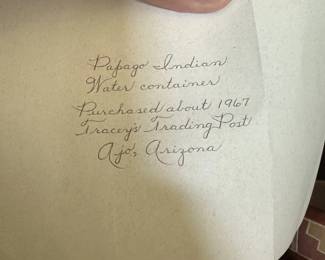 Papago Indian
Water container
Purchased about 1967
Tracey's Trading Post
Ajo, Arizona